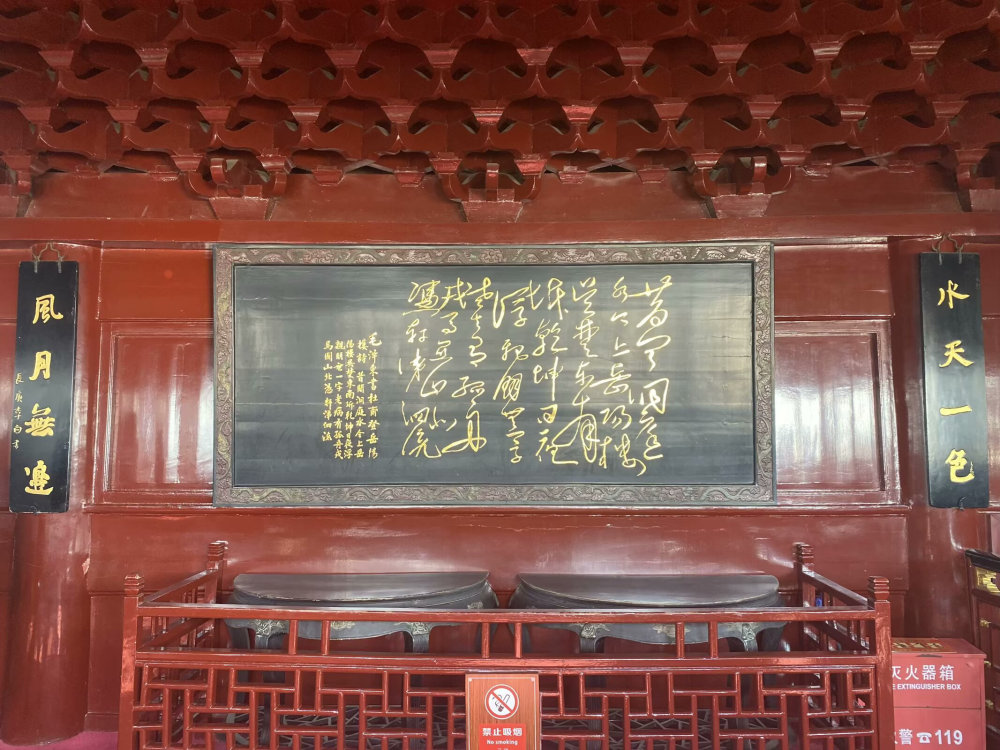 水天一色
昔闻洞庭
水今上岳阳楼
吴楚东南
坼乾坤日夜
浮亲朋无一字
老去有孤舟
戎马关山北
凭轩涕泗流
毛泽東書杜甫登岳陽
楼詩 昔聞洞庭水今上岳
陽楼吴楚東南坼乾坤日夜浮
親朋無一字老病有孤舟戎
馬関山北憑軒涕泗流
風月無邊
長庚李白書
禁止吸烟
No smoking
灭火器箱
EXTINGUISHER BOX
警☎119